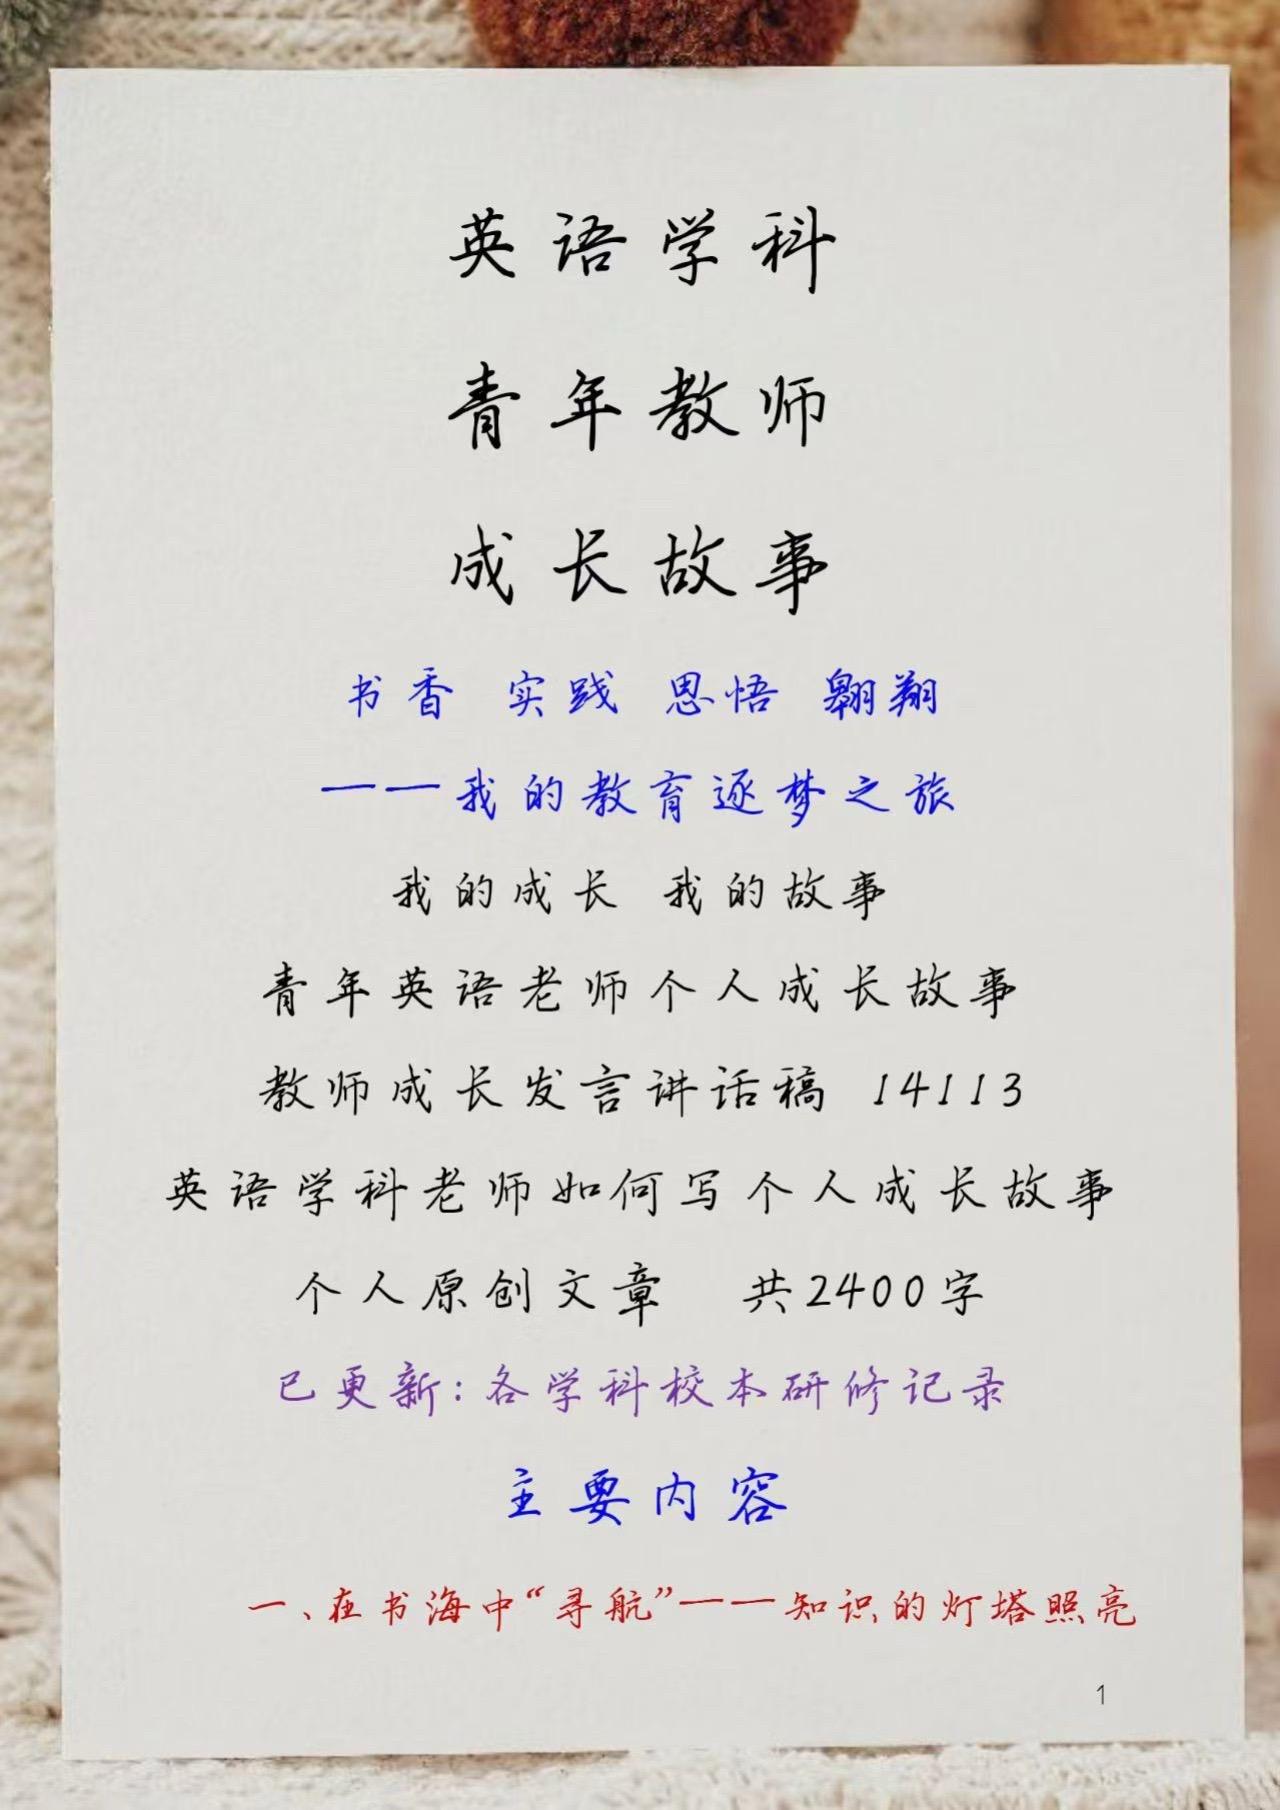 英语学科
青年教师
成长故事
书香 实践 思悟 翱翔
——我的教育逐梦之旅
我的成长 我的故事
青年英语老师个人成长故事
教师成长发言讲话稿 14113
英语学科老师如何写个人成长故事
个人原创文章 共2400字
已更新:各学科校本研修记录
主要内容
一、在书海中“寻航”——知识的灯塔照亮
1